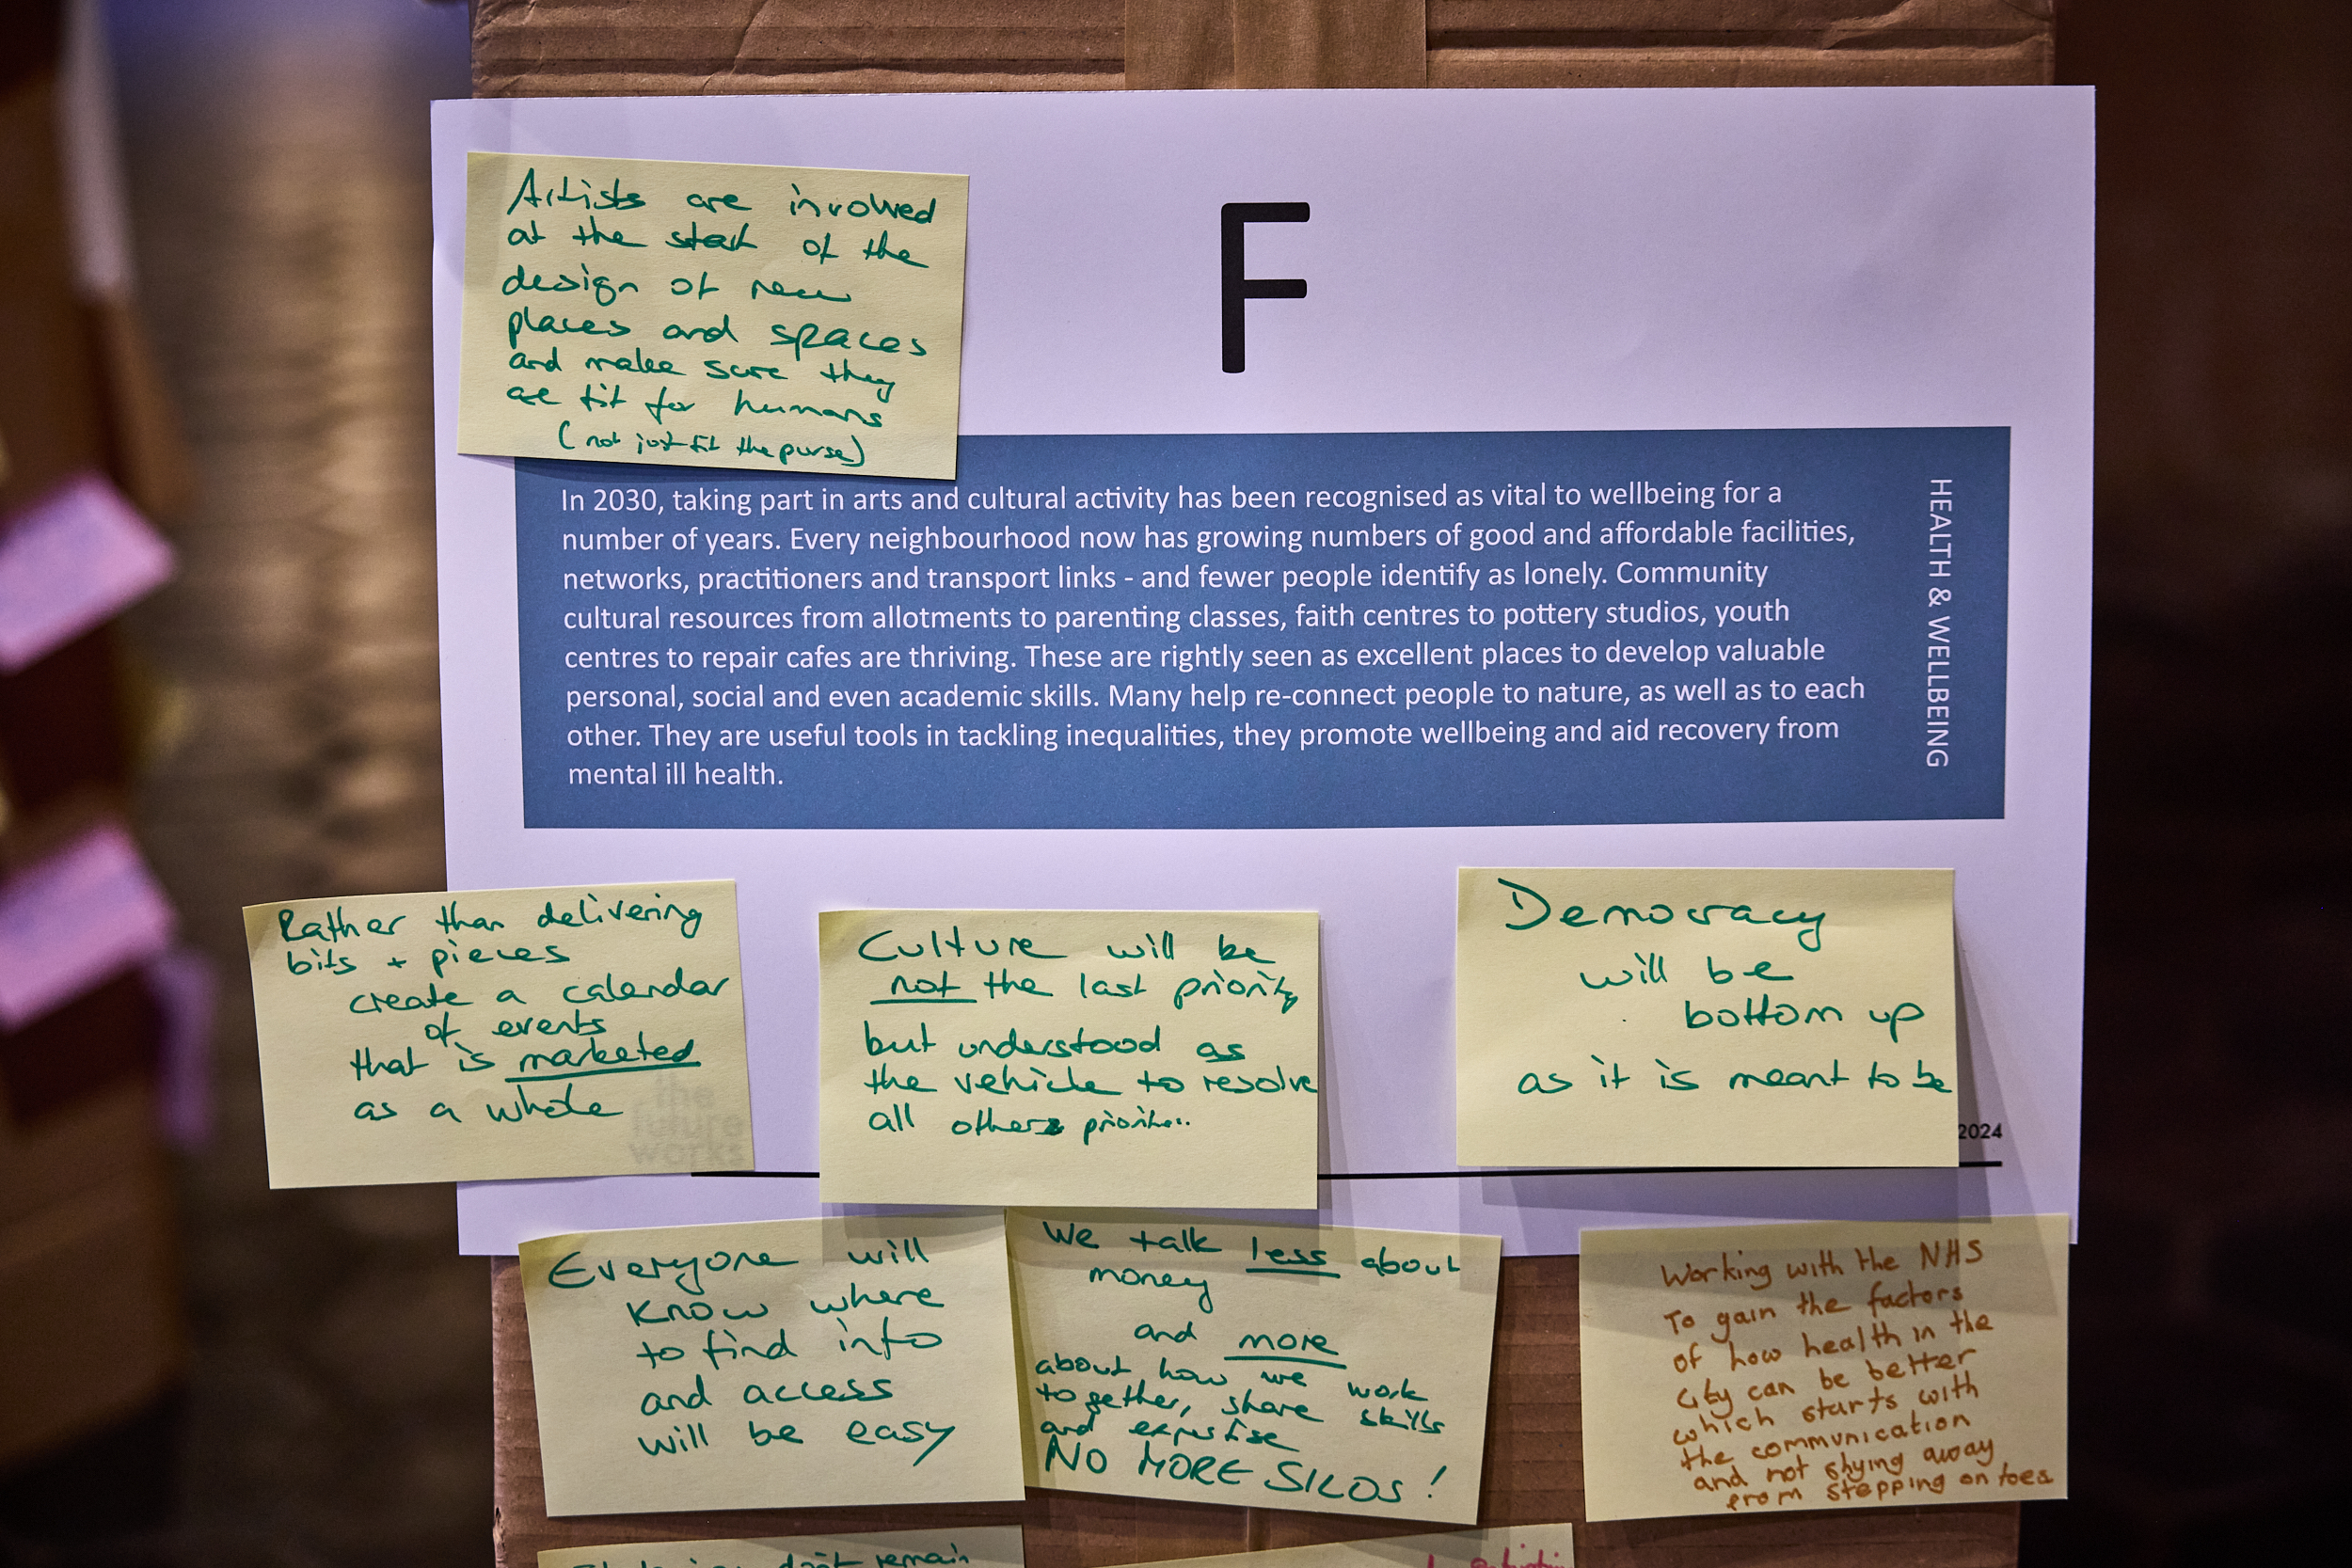 Artists are involved
at the start of the
design of new
places and spaces
and make sure they
are fit for humans
(not just fit the purse)
F
In 2030, taking part in arts and cultural activity has been recognised as vital to wellbeing for a
number of years. Every neighbourhood now has growing numbers of good and affordable facilities,
networks, practitioners and transport links - and fewer people identify as lonely. Community
cultural resources from allotments to parenting classes, faith centres to pottery studios, youth
centres to repair cafes are thriving. These are rightly seen as excellent places to develop valuable
personal, social and even academic skills. Many help re-connect people to nature, as well as to each
other. They are useful tools in tackling inequalities, they promote wellbeing and aid recovery from
mental ill health.
HEALTH & WELLBEING
Rather than delivering
bits + pieces
create a calendar
of events
that is marketed
as a whole
the
future
works
Culture will be
not the last priority
but understood as
the vehicle to resolve
all others
Democracy
will be
bottom up
as it is meant to be
2024
Everyone will
know where
to find info
and access
will be easy
We talk less about
money
and more
about how we work
together, share skills
and expertise
NO MORE SILOS!
Working with the NHS
To gain the factors
of how health in the
city can be better
which starts with
the communication
and not shying away
from stepping on toes
don't remain